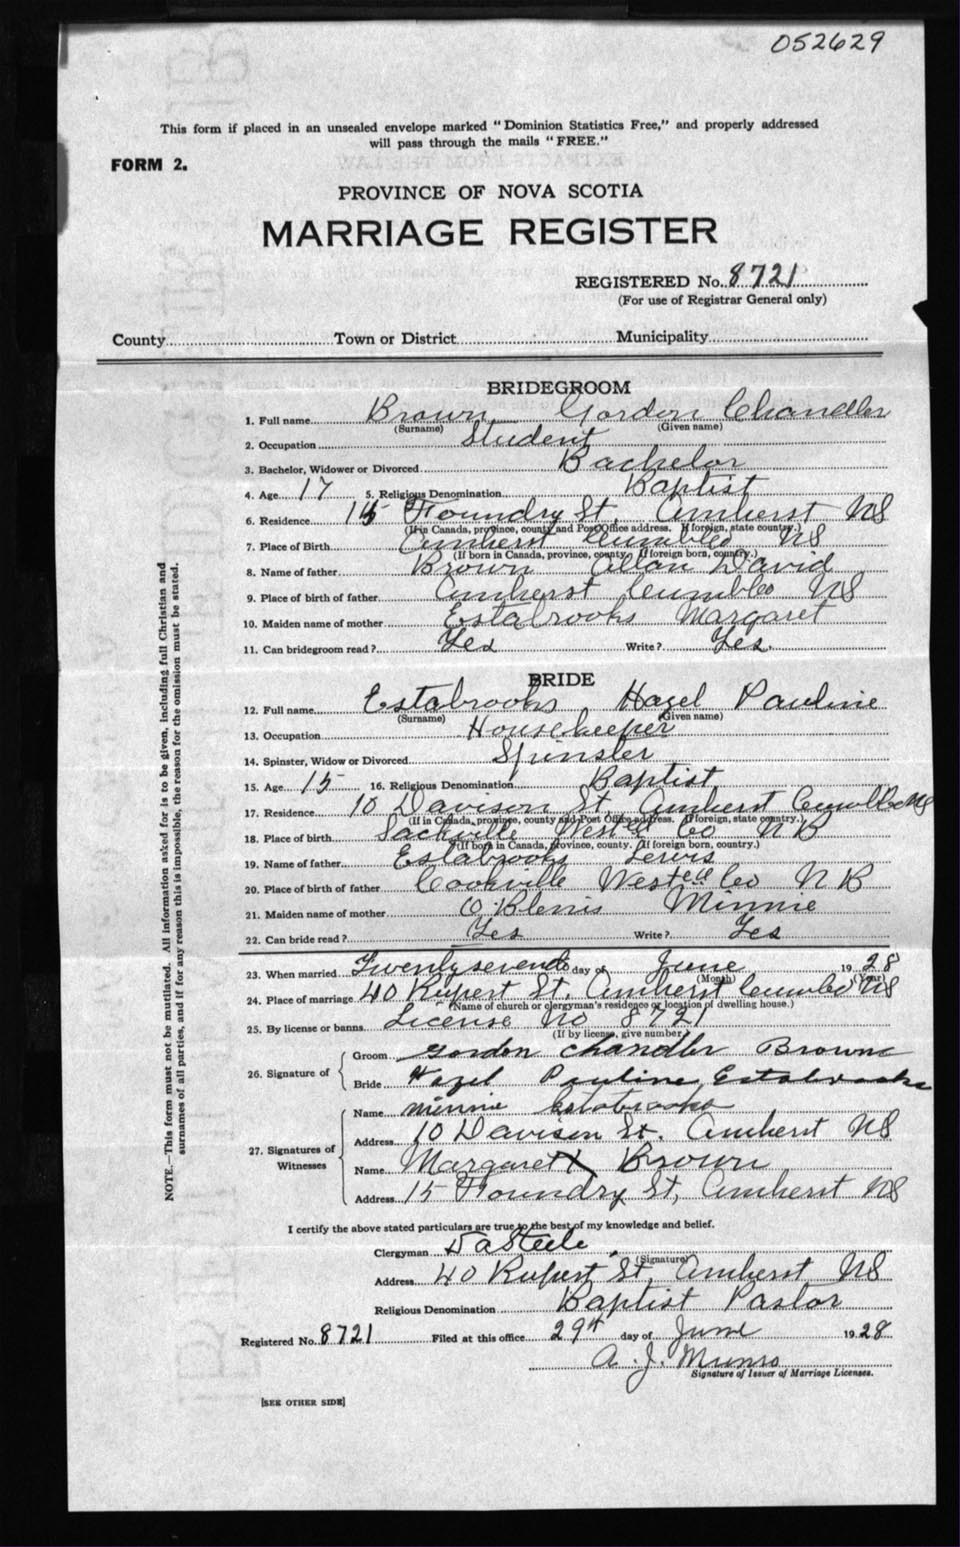 052629
This form if placed in an unsealed envelope marked "Dominion Statistics Free," and properly addressed
will pass through the mails "FREE."
FORM 2.
PROVINCE OF NOVA SCOTIA
MARRIAGE REGISTER
REGISTERED No. 8721
(For use of Registrar General only)
County Town or District Municipality
BRIDEGROOM
1. Full name Brown Gordon Chandler
(Surname) (Given name)
2. Occupation Student
3. Bachelor, Widower or Divorced Bachelor
4. Age 17 5. Religious Denomination Baptist
6. Residence 15 Foundry St, Amherst NS
(If in Canada, province, county and Post Office address. If foreign, state country.)
7. Place of Birth Amherst Cumb Co NS
(If born in Canada, province, county. If foreign born, country.)
8. Name of father Brown Allan David
9. Place of birth of father Amherst Cumb Co NS
10. Maiden name of mother Estabrooks Margaret
11. Can bridegroom read? Yes Write? Yes.
BRIDE
12. Full name Estabrooks Hazel Pauline
(Surname) (Given name)
13. Occupation Housekeeper
14. Spinster, Widow or Divorced Spinster
15. Age 15 16. Religious Denomination Baptist
17. Residence 10 Davison St Amherst Cumb Co NS
(If in Canada, province, county and Post Office address. If foreign, state country.)
18. Place of birth Sackville West'd Co N B
(If born in Canada, province, county. If foreign born, country.)
19. Name of father Estabrooks Lewis
20. Place of birth of father Cookville West'd Co N B
21. Maiden name of mother O'Blenis Minnie
22. Can bride read? Yes Write? Yes
23. When married Twentyseventh day of June 1928
(Month) (Year)
24. Place of marriage 40 Rupert St, Amherst Cumb Co NS
(Name of church or clergyman's residence or location of dwelling house.)
25. By license or banns License No 8721
(If by license, give number.)
26. Signature of Groom Gordon Chandler Browne
Bride Hazel Pauline Estabrooks
27. Signatures of Witnesses Name Minnie Estabrooks
Address 10 Davison St. Amherst NS
Name Margaret Brown
Address 15 Foundry St, Amherst NS
I certify the above stated particulars are true to the best of my knowledge and belief.
Clergyman D A Steele
(Signature)
Address 40 Rupert St, Amherst NS
Religious Denomination Baptist Pastor
Registered No. 8721 Filed at this office 29th day of June 1928
A. J. Munro
Signature of Issuer of Marriage Licenses.
[SEE OTHER SIDE]
NOTE.—This form must not be mutilated. All information asked for is to be given, including full Christian and
surnames of all parties, and if for any reason this is impossible, the reason for the omission must be stated.